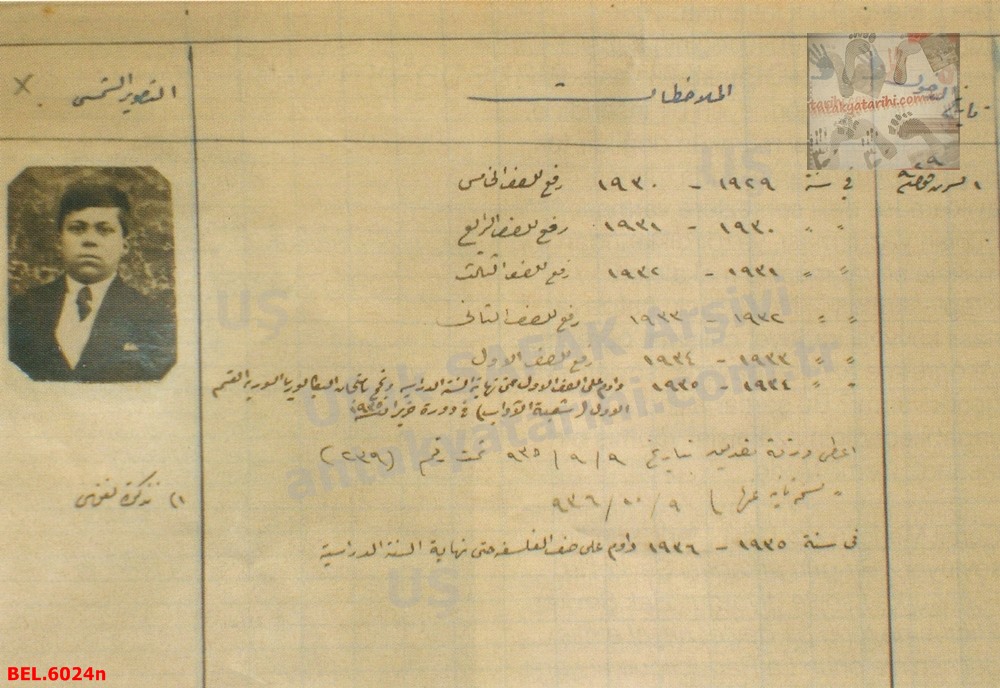 تاريخ الدخول
الملاحظات
التصوير الشمسي
في سنة ١٩٢٩ – ١٩٣٠ رفع للصف الخامس
〃 〃 ١٩٣٠ – ١٩٣١ رفع للصف الرابع
〃 〃 ١٩٣١ – ١٩٣٢ رفع للصف الثالث
〃 〃 ١٩٣٢ – ١٩٣٣ رفع للصف الثاني
〃 〃 ١٩٣٣ – ١٩٣٤ رفع للصف الاول
〃 〃 ١٩٣٤ – ١٩٣٥ داوم على الصف الاول حتى نهاية السنة الدراسية ونجح بامتحان البكالوريا السورية القسم
الاول (شعبة الآداب) في دورة حزيران ٩٣٥
اعطي ورقة تصديق بتاريخ ٩ / ٩ / ٩٣٥ تحت رقم (٢٣٩)
〃 نسخة ثانية عنها ٩ / ١٠ / ٩٣٦
١) تذكرة نفوس
في سنة ١٩٣٥ – ١٩٣٦ داوم على صف الفلسفه حتى نهاية السنة الدراسية
antakyatarihi.com
UŞ
Ufuk ŞAFAK Arşivi
antakyatarihi.com.tr
UŞ
BEL.6024n